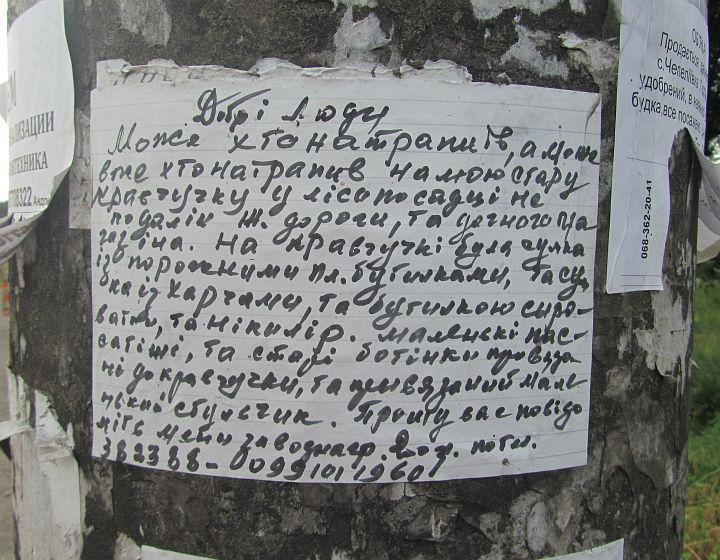 Добрі люди
Може хто натрапив, а може
вже хто натрапив на мою стару
кравчучку у лісопосадці не
подалік ж. дороги, та дачного ма
газіна. На кравчучкі була сумка
із порожними пл. бутилками, та сум
ка із харчами, та бутилкою сиро-
ватки, та нікилір. маленькі пас-
сатіжі, та старі ботінки провяза
ні до кравчучки, та привязаний мале
нький стульчик. Прошу вас повідо
міть мені за вознагр.
382388 - 0991011960
ЛИЗАЦИИ
ТЕХНИКА
708322 Андр
Продається
с. Челепіївка
удобрений, в
будка, все посаж
068-362-20-41